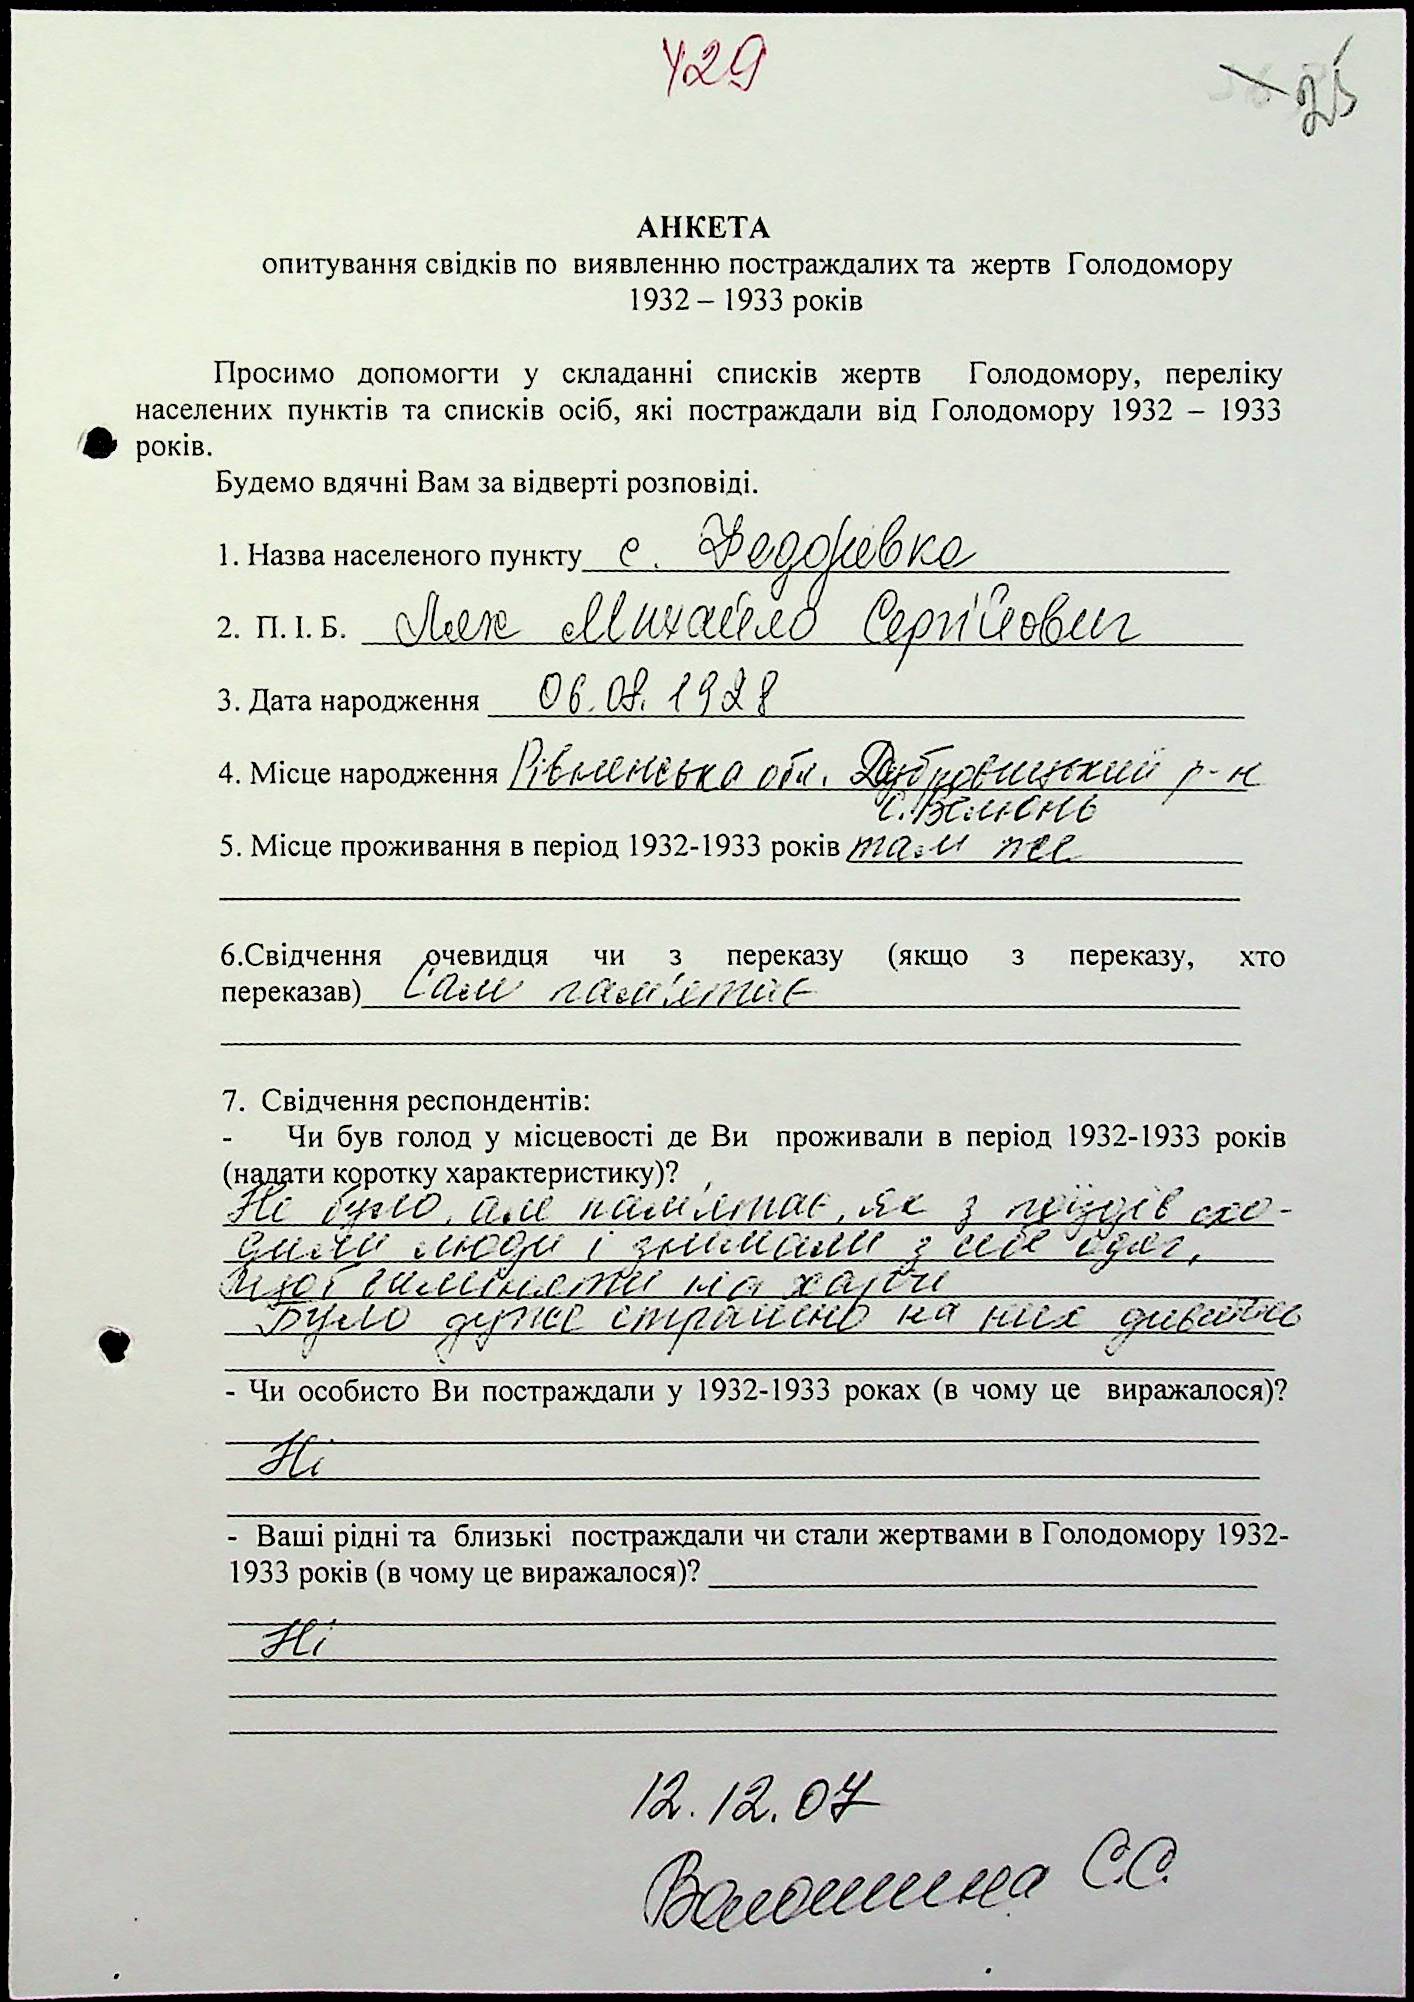 429
25
АНКЕТА
опитування свідків по виявленню постраждалих та жертв Голодомору
1932 – 1933 років
Просимо допомогти у складанні списків жертв Голодомору, переліку
населених пунктів та списків осіб, які постраждали від Голодомору 1932 – 1933
років.
Будемо вдячні Вам за відверті розповіді.
1. Назва населеного пункту с. Федорівка
2. П. І. Б. Лях Михайло Сергійович
3. Дата народження 06.08.1928
4. Місце народження Рівненська обл. Дубровицький р-н
с. Велюнь
5. Місце проживання в період 1932-1933 років там же
6.Свідчення очевидця чи з переказу (якщо з переказу, хто
переказав) Сам пам'ятає
7. Свідчення респондентів:
- Чи був голод у місцевості де Ви проживали в період 1932-1933 років
(надати коротку характеристику)?
Не було, але пам'ятає, як з поїздів схо-
дили люди і знімали з себе одяг,
щоб виміняти на харчі
Було дуже страшно на них дивитись
- Чи особисто Ви постраждали у 1932-1933 роках (в чому це виражалося)?
Ні
- Ваші рідні та близькі постраждали чи стали жертвами в Голодомору 1932-
1933 років (в чому це виражалося)?
Ні
12.12.07
Волошина С.С.